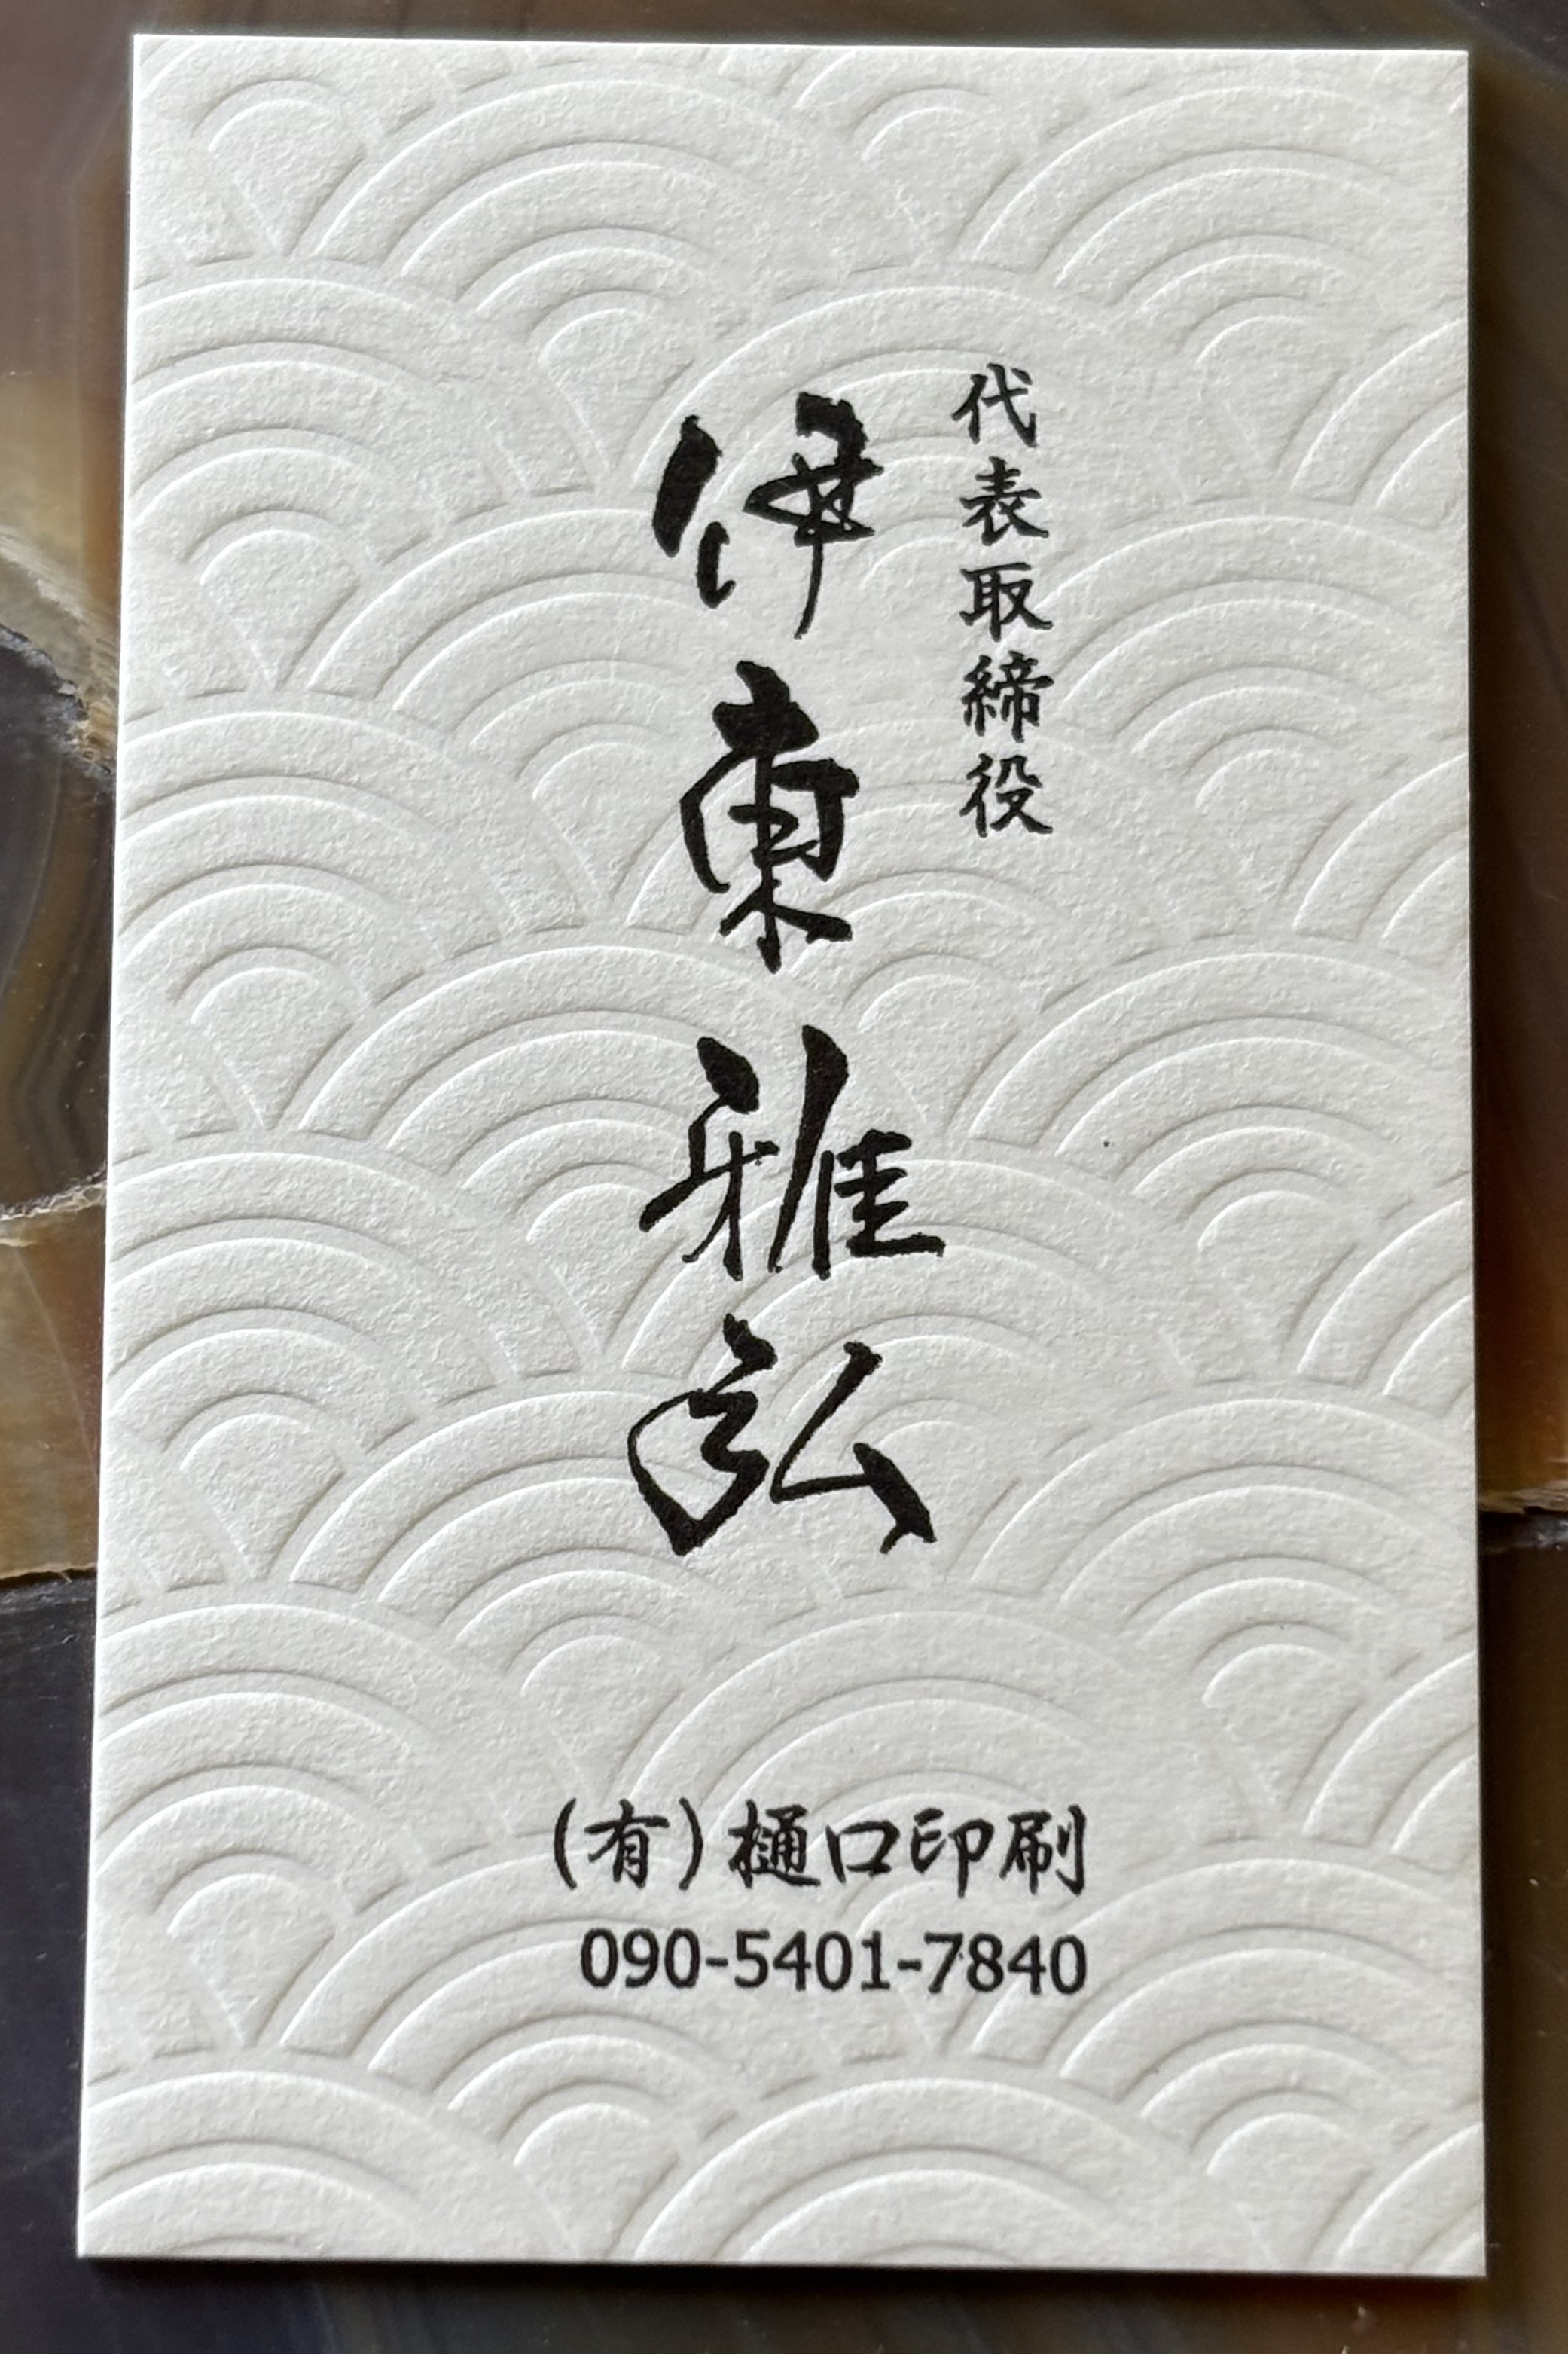 代表取締役
伊東雅弘
(有)樋口印刷
090-5401-7840